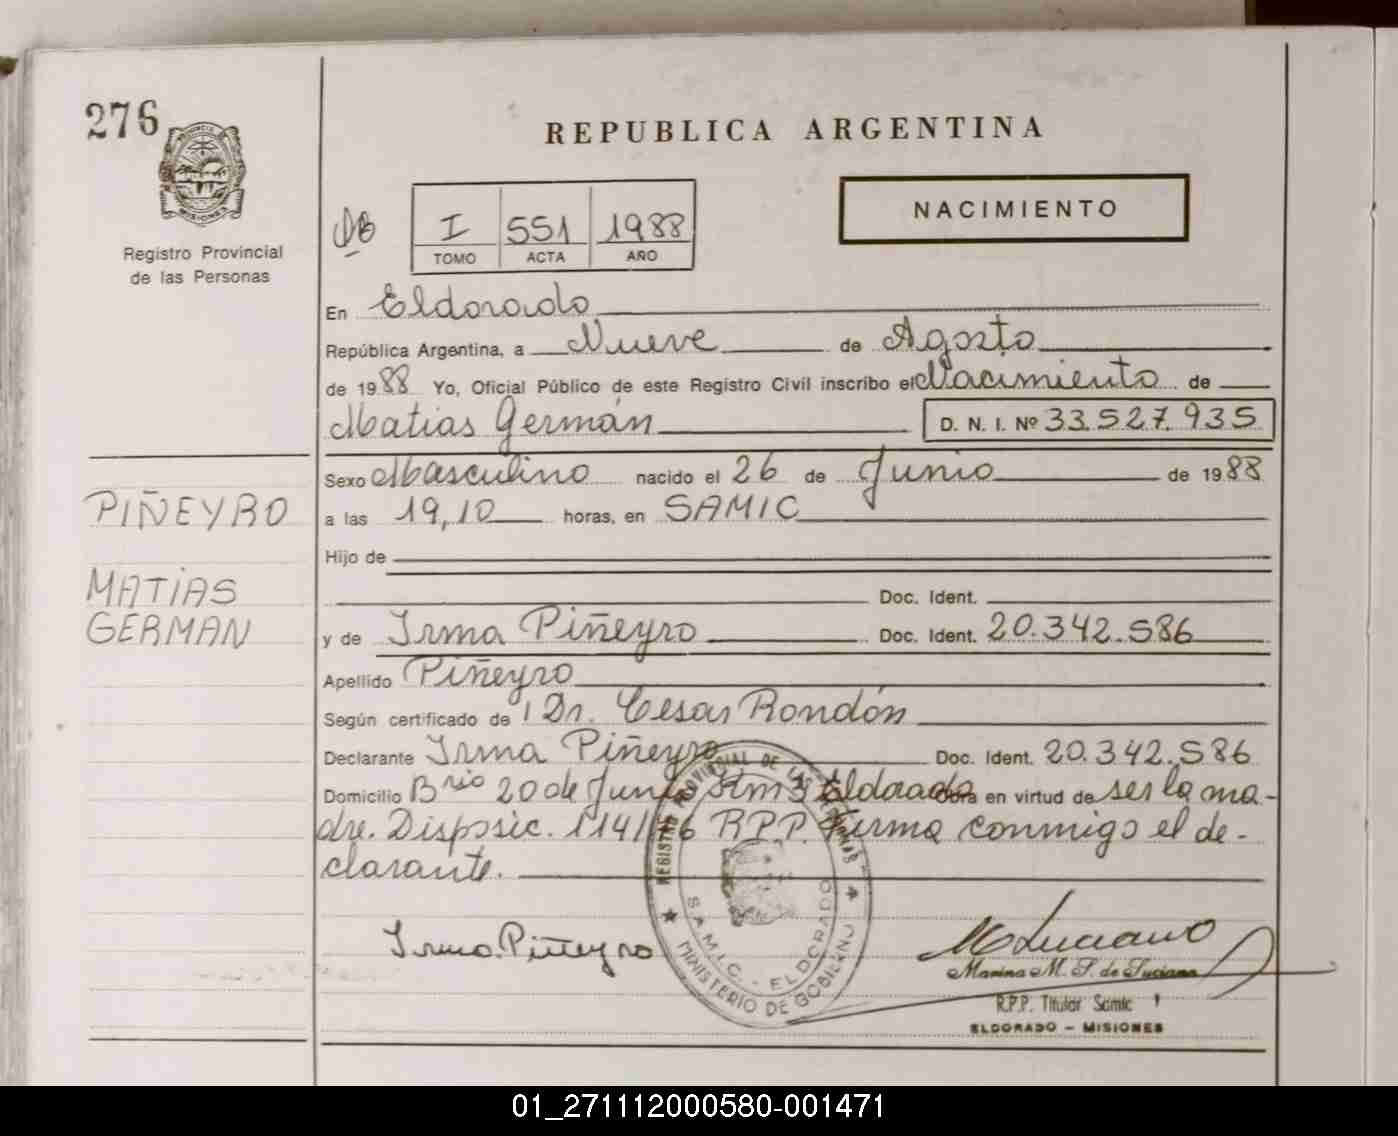 276
PROVINCIA DE
MISIONES
Registro Provincial
de las Personas
REPUBLICA ARGENTINA
NACIMIENTO
I 551 1988
TOMO ACTA AÑO
En Eldorado
República Argentina, a Nueve de Agosto
de 1988 Yo, Oficial Público de este Registro Civil inscribo el Nacimiento de
Matias Germán D. N. I. Nº 33.527.935
Sexo Masculino nacido el 26 de Junio de 1988
a las 19,10 horas, en SAMIC
Hijo de
Doc. Ident.
y de Irma Piñeyro Doc. Ident. 20.342.586
Apellido Piñeyro
Según certificado de Dr. Cesar Rondón
Declarante Irma Piñeyro Doc. Ident. 20.342.586
Domicilio Brio 20 de Junio Km 3 Eldorado Obra en virtud de ser la ma-
dre. Disposic. 114/86 R.P.P. Firma conmigo el de-
clarante.
PIÑEYRO
MATIAS
GERMAN
REGISTRO PROVINCIAL DE LAS PERSONAS
S.A.M.I.C. - ELDORADO
MINISTERIO DE GOBIERNO
Irma Piñeyro
M Luciano
Marina M. de Luciano
R.P.P. Titular Samic
ELDORADO - MISIONES
01_271112000580-001471